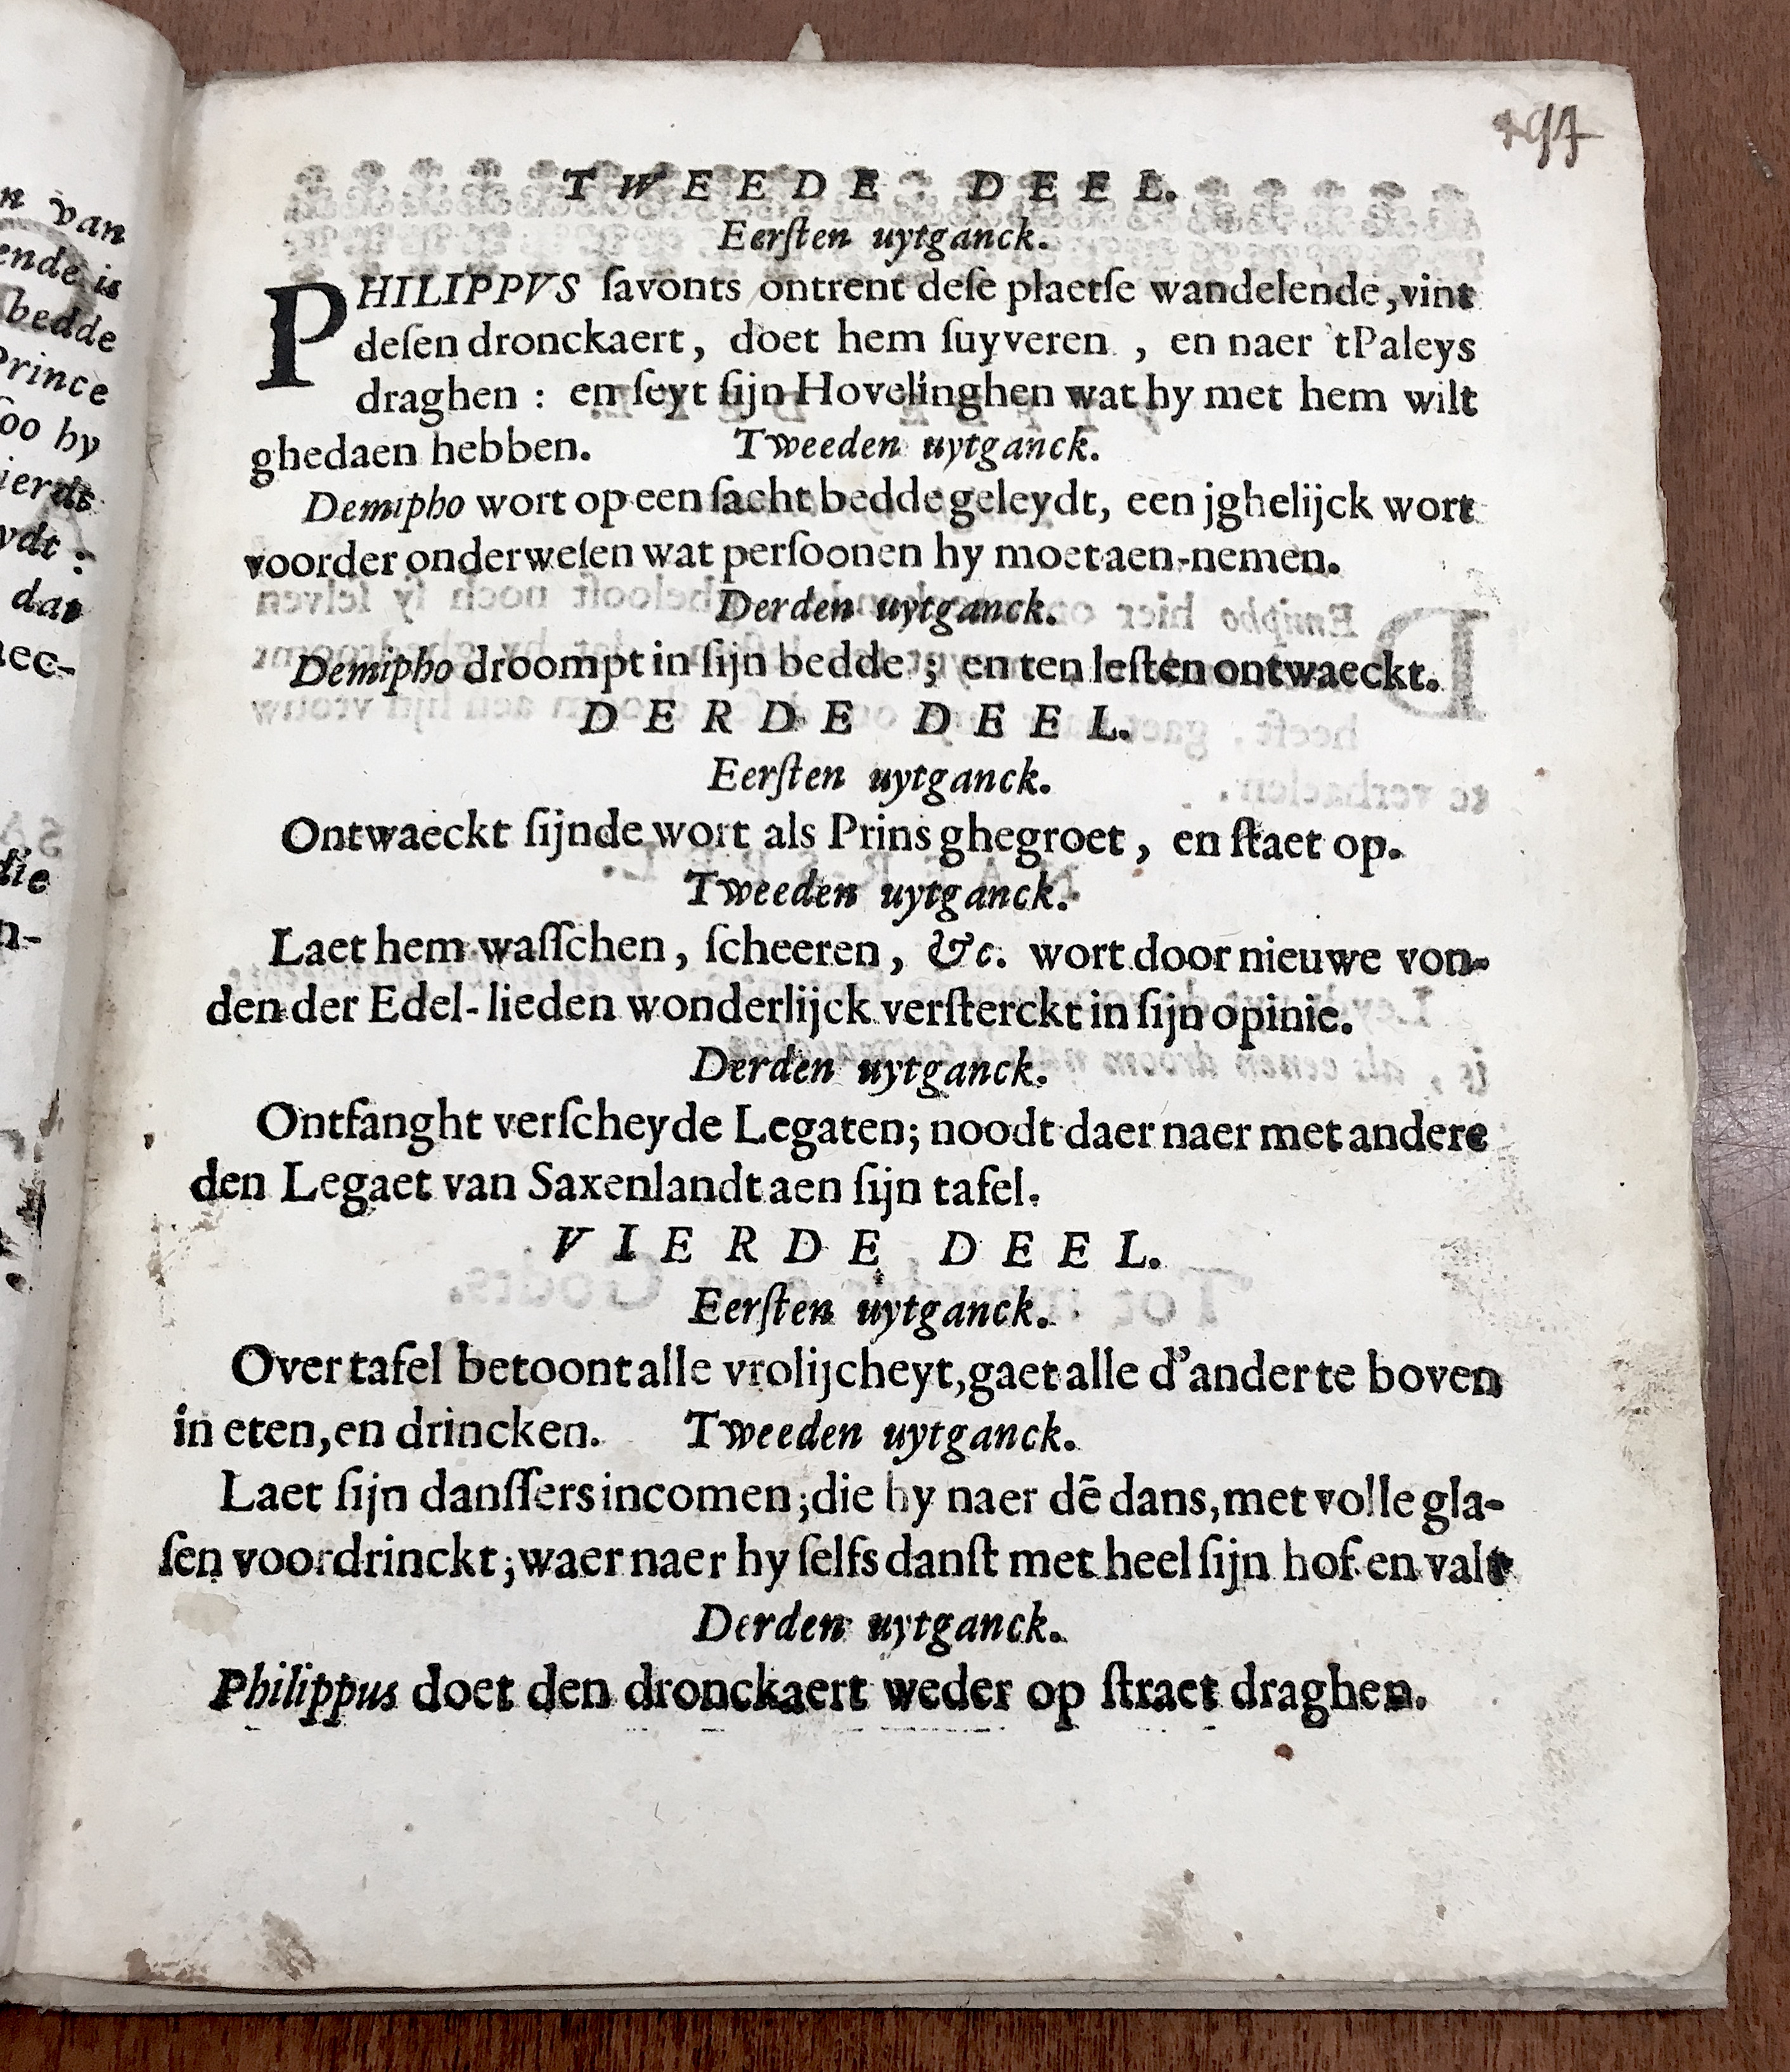 197
TWEEDE DEEL.
Eerſten uytganck.
PHILIPPVS ſavonts ontrent deſe plaetſe wandelende, vint
deſen dronckaert, doet hem ſuyveren, en naer 'tPaleys
draghen : en ſeyt ſijn Hovelinghen wat hy met hem wilt
ghedaen hebben. Tweeden uytganck.
Demipho wort op een ſacht bedde geleydt, een jghelijck wort
voorder onderweſen wat perſoonen hy moet aen-nemen.
Derden uytganck.
Demipho droompt in ſijn bedde ; en ten leſten ontwaeckt.
DERDE DEEL.
Eerſten uytganck.
Ontwaeckt ſijnde wort als Prins ghegroet, en ſtaet op.
Tweeden uytganck.
Laet hem waſſchen, ſcheeren, &c. wort door nieuwe von-
den der Edel-lieden wonderlijck verſterckt in ſijn opinie.
Derden uytganck.
Ontfanght verſcheyde Legaten; noodt daer naer met andere
den Legaet van Saxenlandt aen ſijn tafel.
VIERDE DEEL.
Eerſten uytganck.
Over tafel betoont alle vrolijcheyt, gaet alle d'ander te boven
in eten, en drincken. Tweeden uytganck.
Laet ſijn danſſers incomen; die hy naer dē dans, met volle gla-
ſen voordrinckt; waer naer hy ſelfs danſt met heel ſijn hof en valt
Derden uytganck.
Philippus doet den dronckaert weder op ſtraet draghen.
van
ende is
bedde
Prince
ſoo hy
dat
die